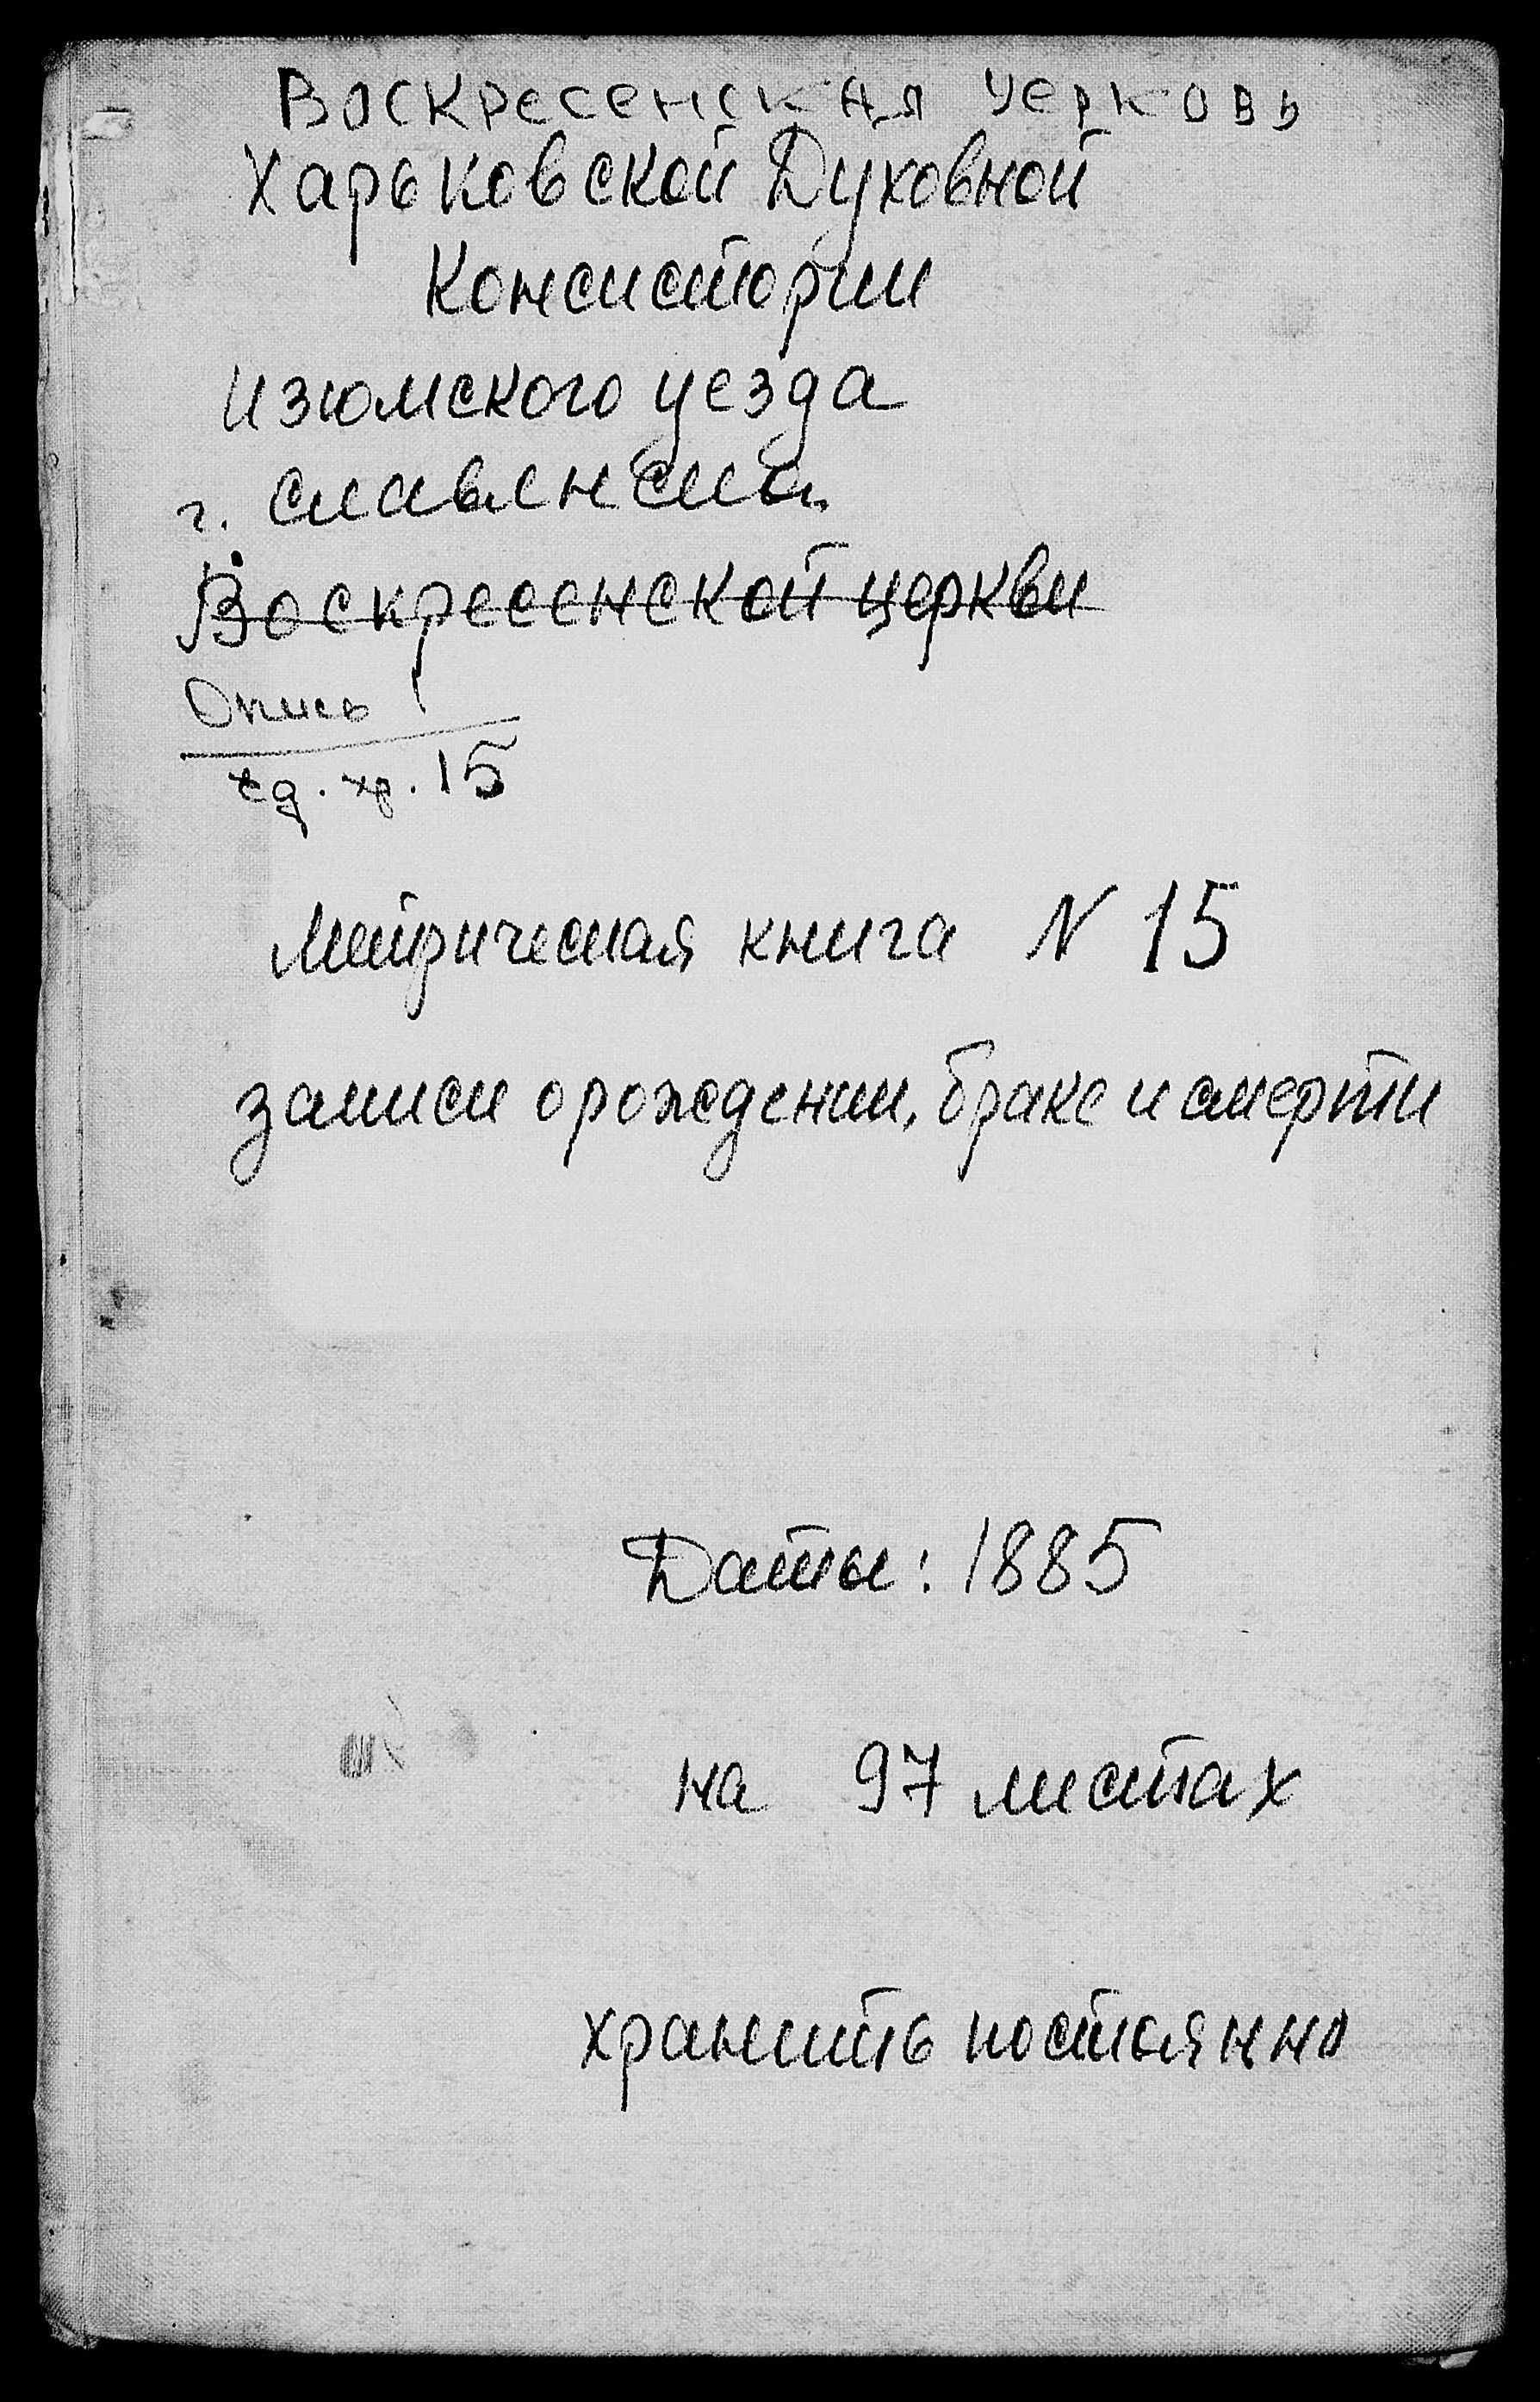 Воскресенская церковь
Харьковской Духовной
Консистории
Изюмского уезда
г. Славянска
Воскресенской церкви
Опись
ед. хр. 15
Метрическая книга N 15
записи о рождении, браке и смерти
Даты: 1885
на 97 листах
хранить постоянно